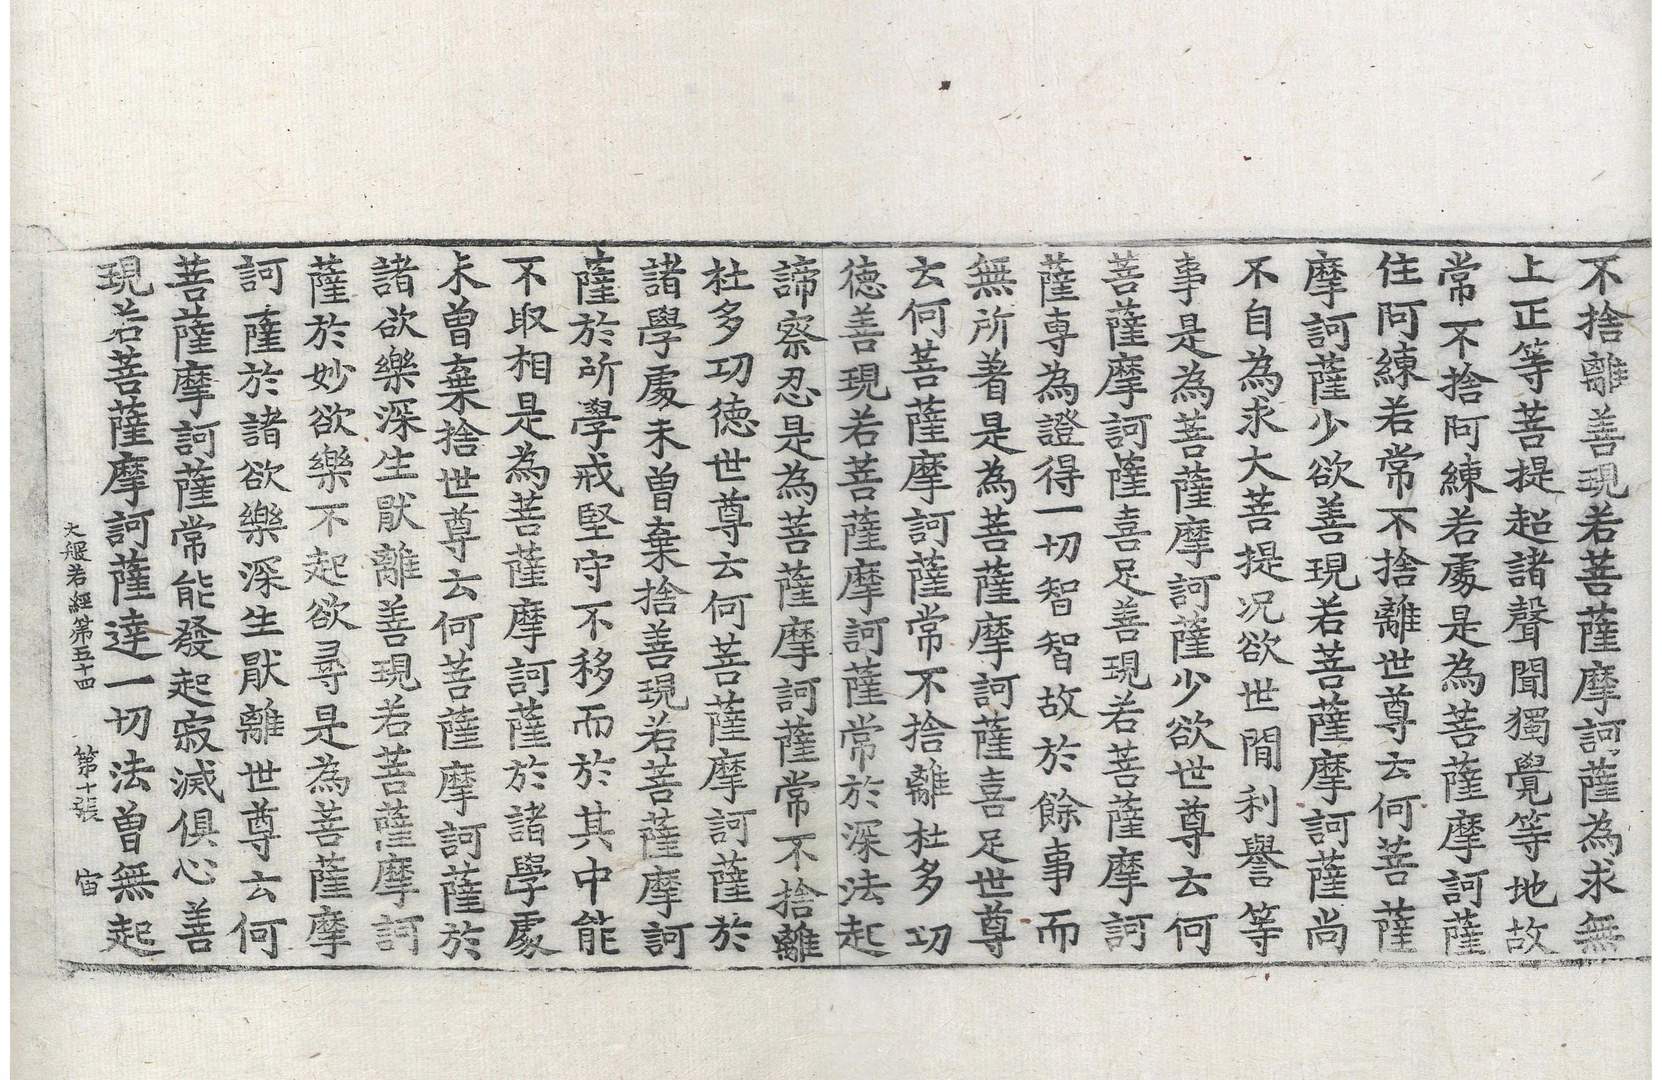 不捨離善現若菩薩摩訶薩為求無
上正等菩提超諸聲聞獨覺等地故
常不捨阿練若處是為菩薩摩訶薩
住阿練若常不捨離世尊云何菩薩
摩訶薩少欲善現若菩薩摩訶薩尚
不自為求大菩提况欲世間利譽等
事是為菩薩摩訶薩少欲世尊云何
菩薩摩訶薩喜足善現若菩薩摩訶
薩専為證得一切智智故於餘事而
無所着是為菩薩摩訶薩喜足世尊
云何菩薩摩訶薩常不捨離杜多功
德善現若菩薩摩訶薩常於深法起
諦察忍是為菩薩摩訶薩常不捨離
杜多功德世尊云何菩薩摩訶薩於
諸學處未曾棄捨善現若菩薩摩訶
薩於所學戒堅守不移而於其中能
不取相是為菩薩摩訶薩於諸學處
未曾棄捨世尊云何菩薩摩訶薩於
諸欲樂深生猒離善現若菩薩摩訶
薩於妙欲樂不起欲尋是為菩薩摩
訶薩於諸欲樂深生猒離世尊云何
菩薩摩訶薩常能發起寂滅俱心善
現若菩薩摩訶薩達一切法曾無起
大般若經第五十四 第十張 宙